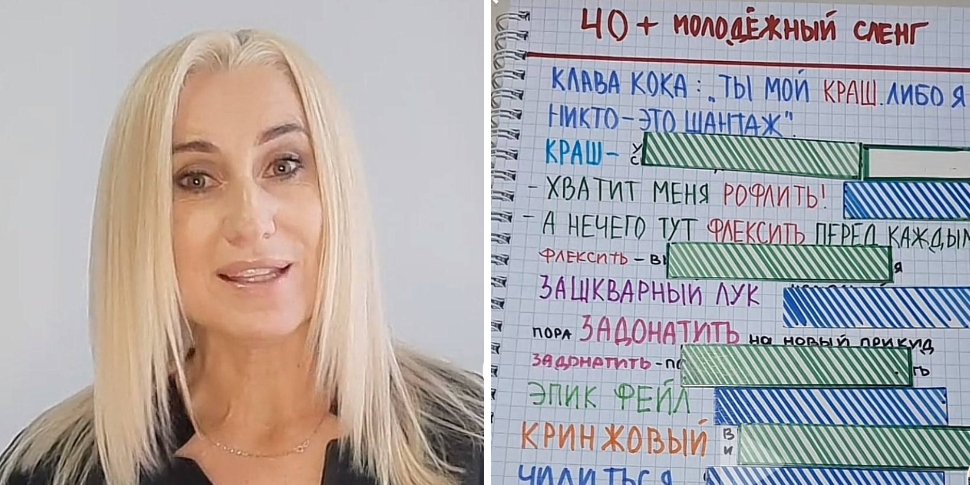 40 + МОЛОДЁЖНЫЙ СЛЕНГ
КЛАВА КОКА: „ТЫ МОЙ КРАШ. ЛИБО Я
НИКТО - ЭТО ШАНТАЖ".
КРАШ-
- ХВАТИТ МЕНЯ РОФЛИТЬ!
- А НЕЧЕГО ТУТ ФЛЕКСИТЬ ПЕРЕД КАЖДЫМ
ФЛЕКСИТЬ -
ЗАШКВАРНЫЙ ЛУК
ПОРА ЗАДОНАТИТЬ НА НОВЫЙ ПРИКИД
ЗАДОНАТИТЬ -
ЭПИК ФЕЙЛ
КРИНЖОВЫЙ
ЧИЛИТЬСЯ